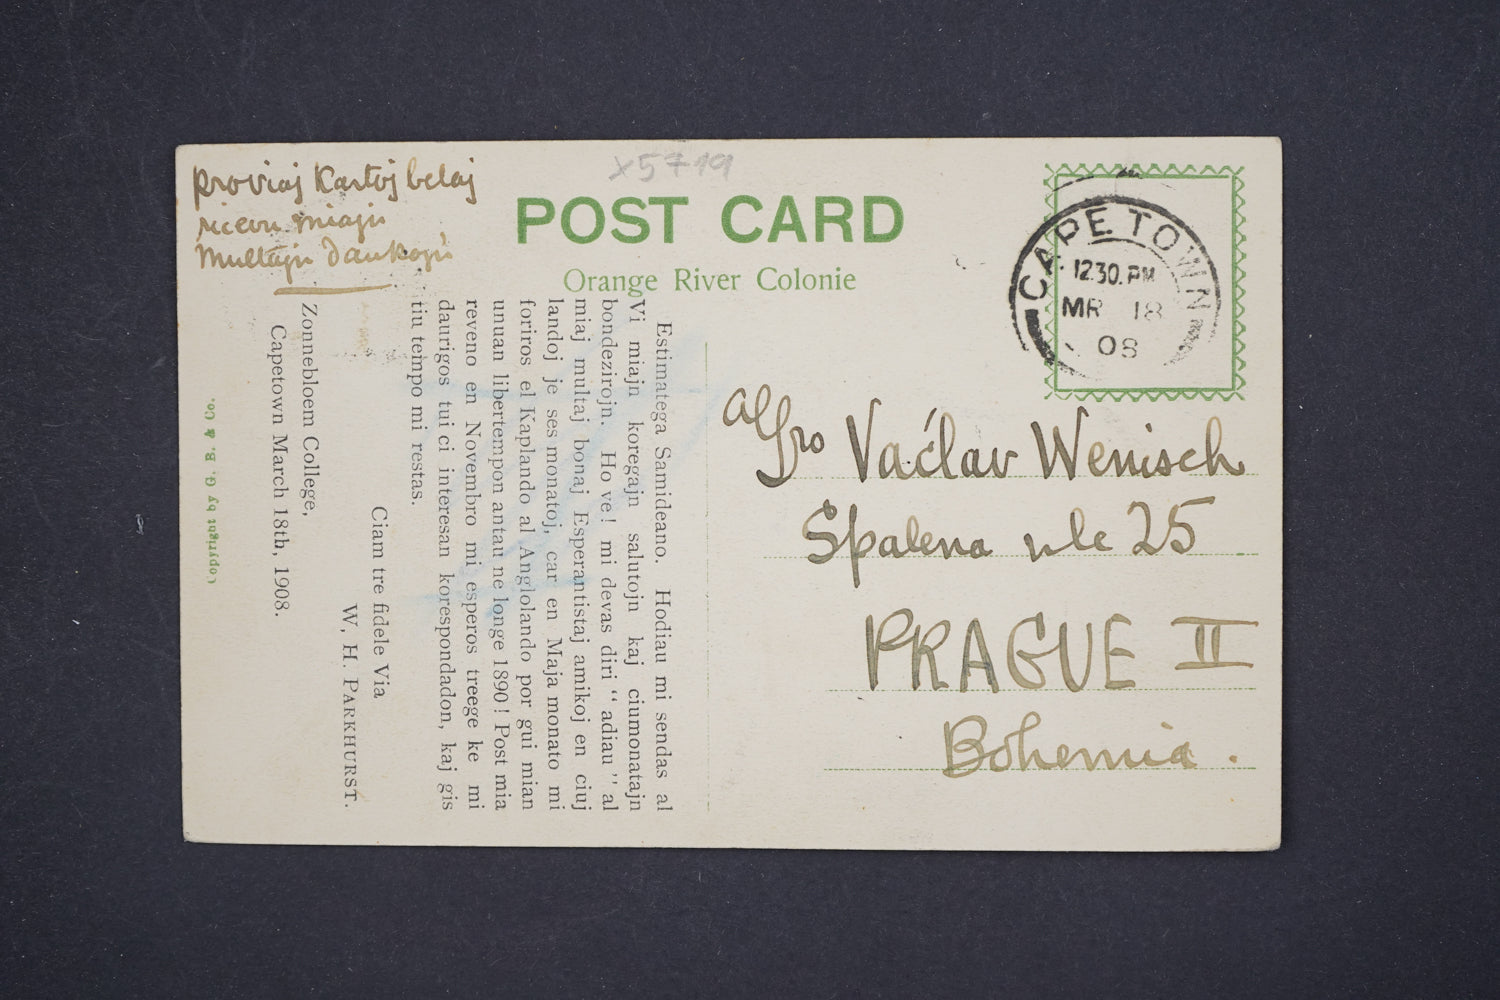 Proviaj Kartoj belaj
ricevu miajn
Multajn dankojn
x5719
POST CARD
Orange River Colonie
CAPE TOWN
12.30. PM
MR 18
08
Estimatega Samideano. Hodiau mi sendas al
Vi miajn koregajn salutojn kaj ciumonatajn
bondezirojn. Ho ve! mi devas diri “ adiau ” al
miaj multaj bonaj Esperantistaj amikoj en ciuj
landoj je ses monatoj, car en Maja monato mi
foriros el Kaplando al Anglolando por gui mian
unuan libertempon antau ne longe 1890! Post mia
reveno en Novembro mi esperos treege ke mi
daurigos tui ci interesan korespondadon, kaj gis
tiu tempo mi restas.
Ciam tre fidele Via
W. H. PARKHURST.
Zonnebloem College,
Capetown March 18th, 1908.
Copyright by G. B. & Co.
Václav Wenisch
Spalena ulc 25
PRAGUE II
Bohemia.